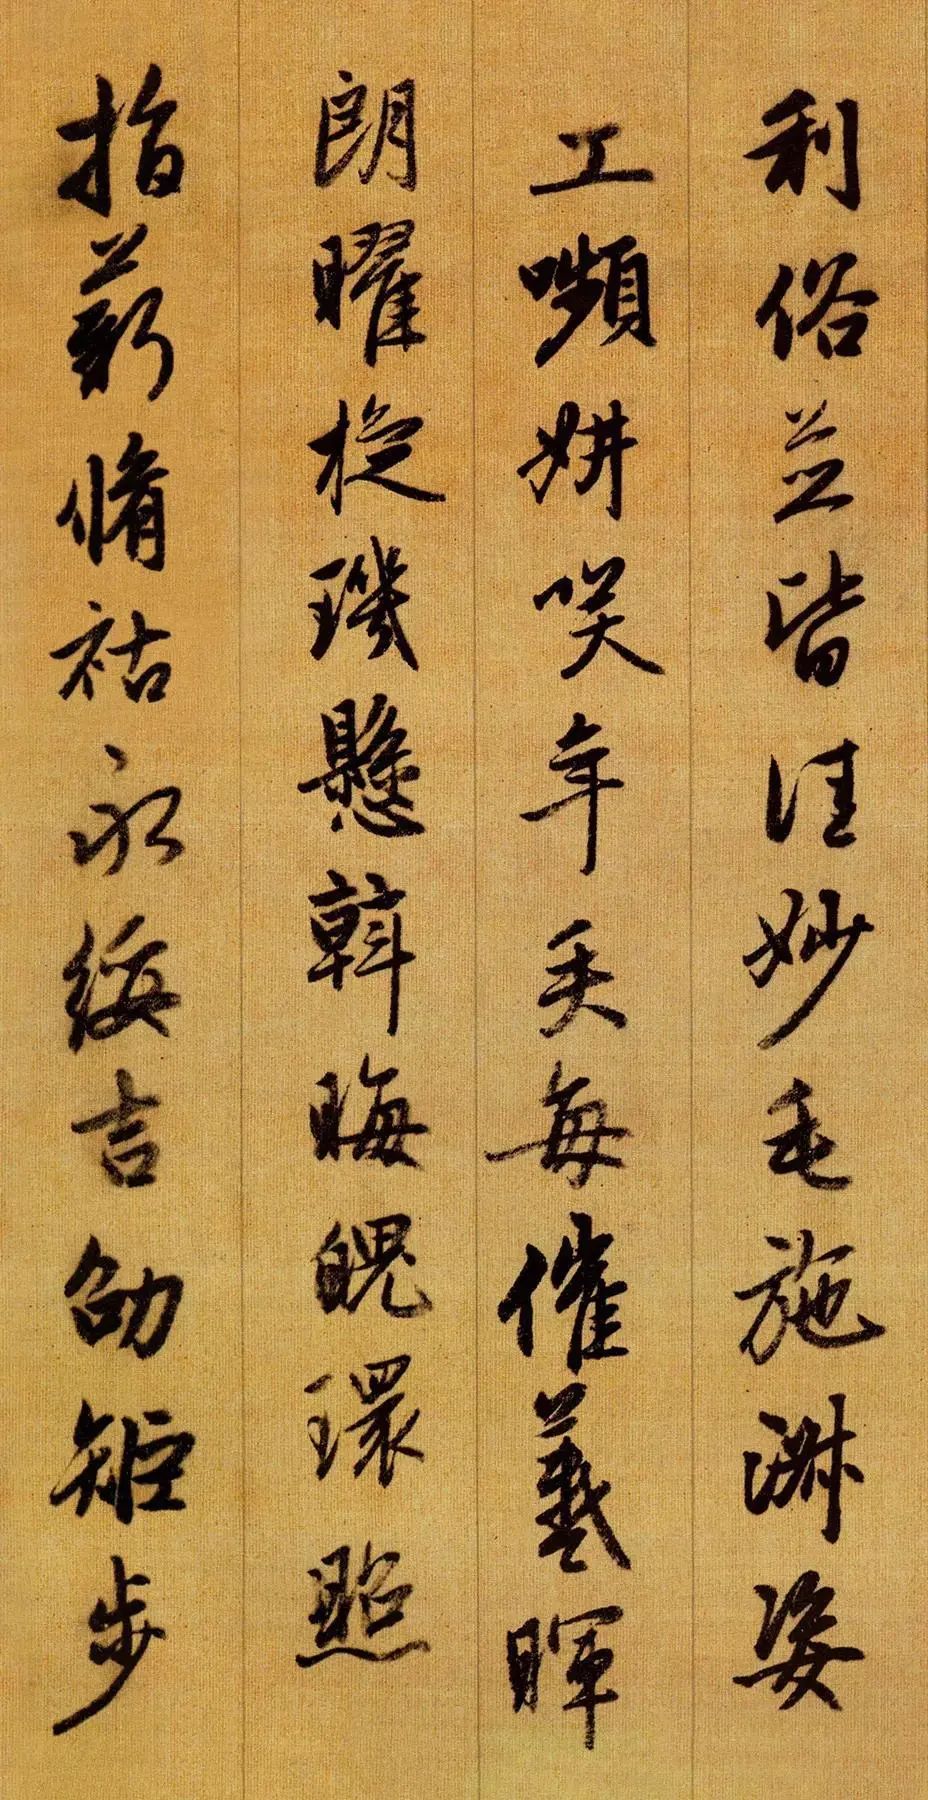 利俗並皆佳妙毛施淑姿
工嚬妍咲年矢每催羲暉
朗曜旋璣懸斡晦魄環照
指薪脩祜永綏吉劭矩步